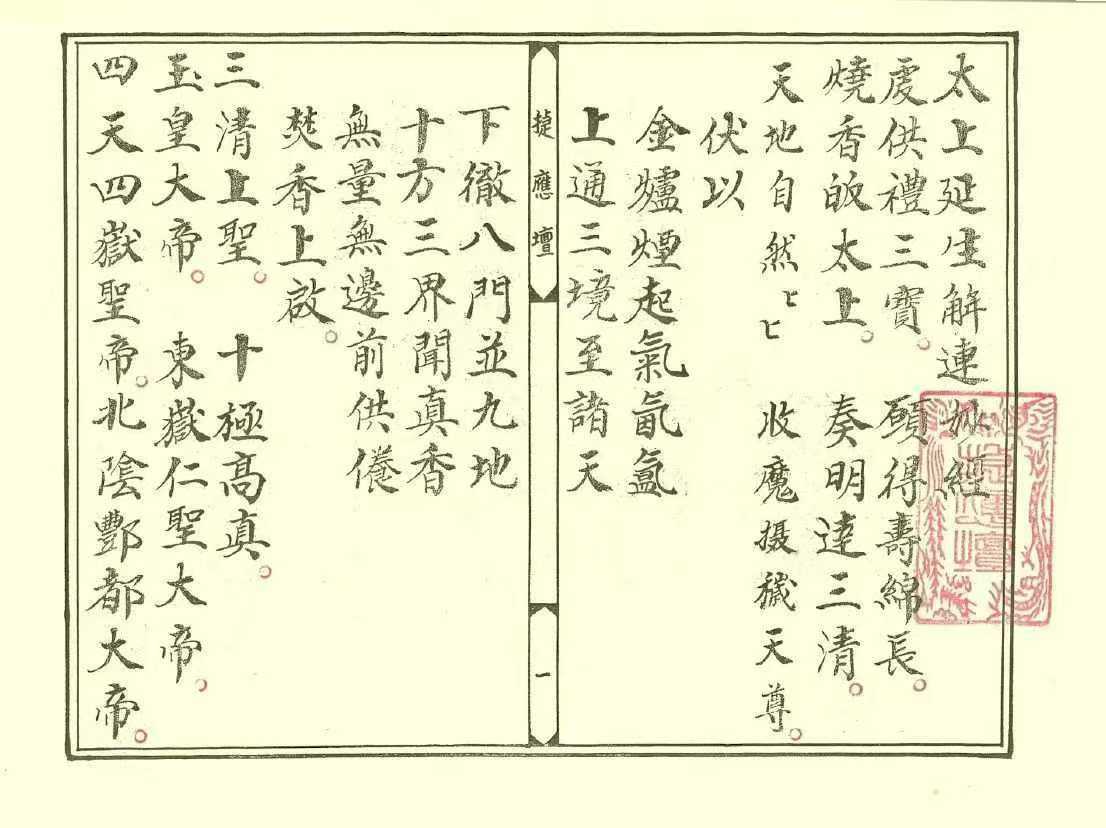 太上延生解連妖經
虔供禮三寶。 願得壽綿長。
燒香皈太上。 奏明達三清。
天地自然 匕匕 收魔摄穢天尊。
伏以
金爐煙起氣氤氳
上通三境至諸天
捷應壇 一
下徹八門並九地
十方三界聞真香
無量無邊前供養
焚香上啟。
三清上聖。 十極高真。
玉皇大帝。 東嶽仁聖大帝。
四天四嶽聖帝。北陰酆都大帝。